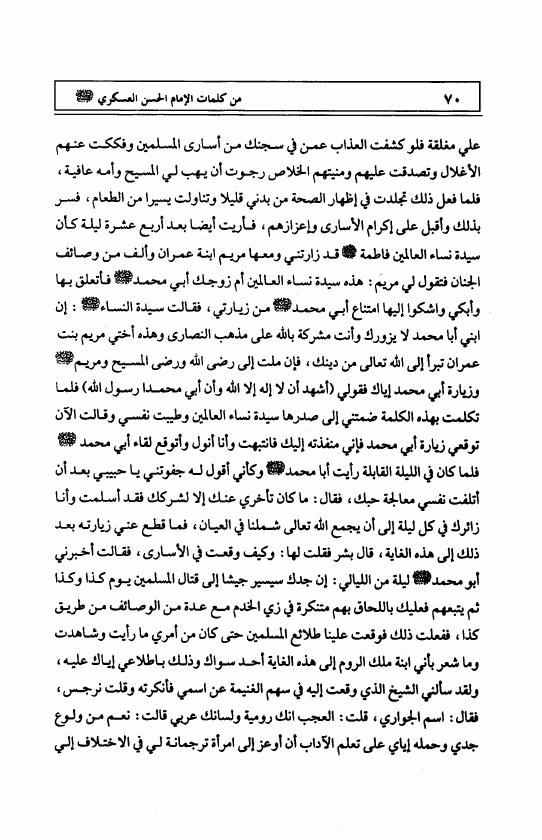 ٧٠ من كلمات الإمام الحسن العسكري
علي مغلقة فلو كشفت العذاب عمن في سجنك من أسارى المسلمين وفككت عنهم
الأغلال وتصدقت عليهم ومنيتهم الخلاص رجوت أن يهب لي المسيح وأمه عافية ،
فلما فعل ذلك تجلدت في إظهار الصحة من بدني قليلا وتناولت يسيرا من الطعام ، فسر
بذلك وأقبل على إكرام الأسارى وإعزازهم ، فأريت أيضا بعد أربع عشرة ليلة كأن
سيدة نساء العالمين فاطمة قد زارتني ومعها مريم ابنة عمران وألف من وصائف
الجنان فتقول لي مريم : هذه سيدة نساء العالمين أم زوجك أبي محمد فأتعلق بها
وأبكي واشكوا إليها امتناع أبي محمد من زيارتي ، فقالت سيدة النساء : إن
ابني أبا محمد لا يزورك وأنت مشركة بالله على مذهب النصارى وهذه أختي مريم بنت
عمران تبرأ إلى الله تعالى من دينك ، فإن ملت إلى رضى الله ورضى المسيح ومريم
وزيارة أبي محمد إياك فقولي (أشهد أن لا إله إلا الله وأن أبي محمدا رسول الله) فلما
تكلمت بهذه الكلمة ضمتني إلى صدرها سيدة نساء العالمين وطيبت نفسي وقالت الآن
توقعي زيارة أبي محمد فإني منفذته إليك فانتبهت وأنا أنول وأتوقع لقاء أبي محمد
فلما كان في الليلة القابلة رأيت أبا محمد وكأني أقول له جفوتني يا حبيبي بعد أن
أتلفت نفسي معالجة حبك ، فقال : ما كان تأخري عنك إلا لشركك فقد أسلمت وأنا
زائرك في كل ليلة إلى أن يجمع الله تعالى شملنا في العيان ، فما قطع عني زيارته بعد
ذلك إلى هذه الغاية ، قال بشر فقلت لها : وكيف وقعت في الأسارى ، فقالت أخبرني
أبو محمد ليلة من الليالي : إن جدك سيسير جيشا إلى قتال المسلمين يوم كذا وكذا
ثم يتبعهم فعليك باللحاق بهم متنكرة في زي الخدم مع عدة من الوصائف من طريق
كذا ، ففعلت ذلك فوقعت علينا طلائع المسلمين حتى كان من أمري ما رأيت وشاهدت
وما شعر بأني ابنة ملك الروم إلى هذه الغاية أحد سواك وذلك باطلاعي إياك عليه ،
ولقد سألني الشيخ الذي وقعت إليه في سهم الغنيمة عن اسمي فأنكرته وقلت نرجس ،
فقال : اسم الجواري ، قلت : العجب انك رومية ولسانك عربي قالت : نعم من ولوع
جدي وحمله إياي على تعلم الآداب أن أوعز إلى امرأة ترجمانة لي في الاختلاف إلي